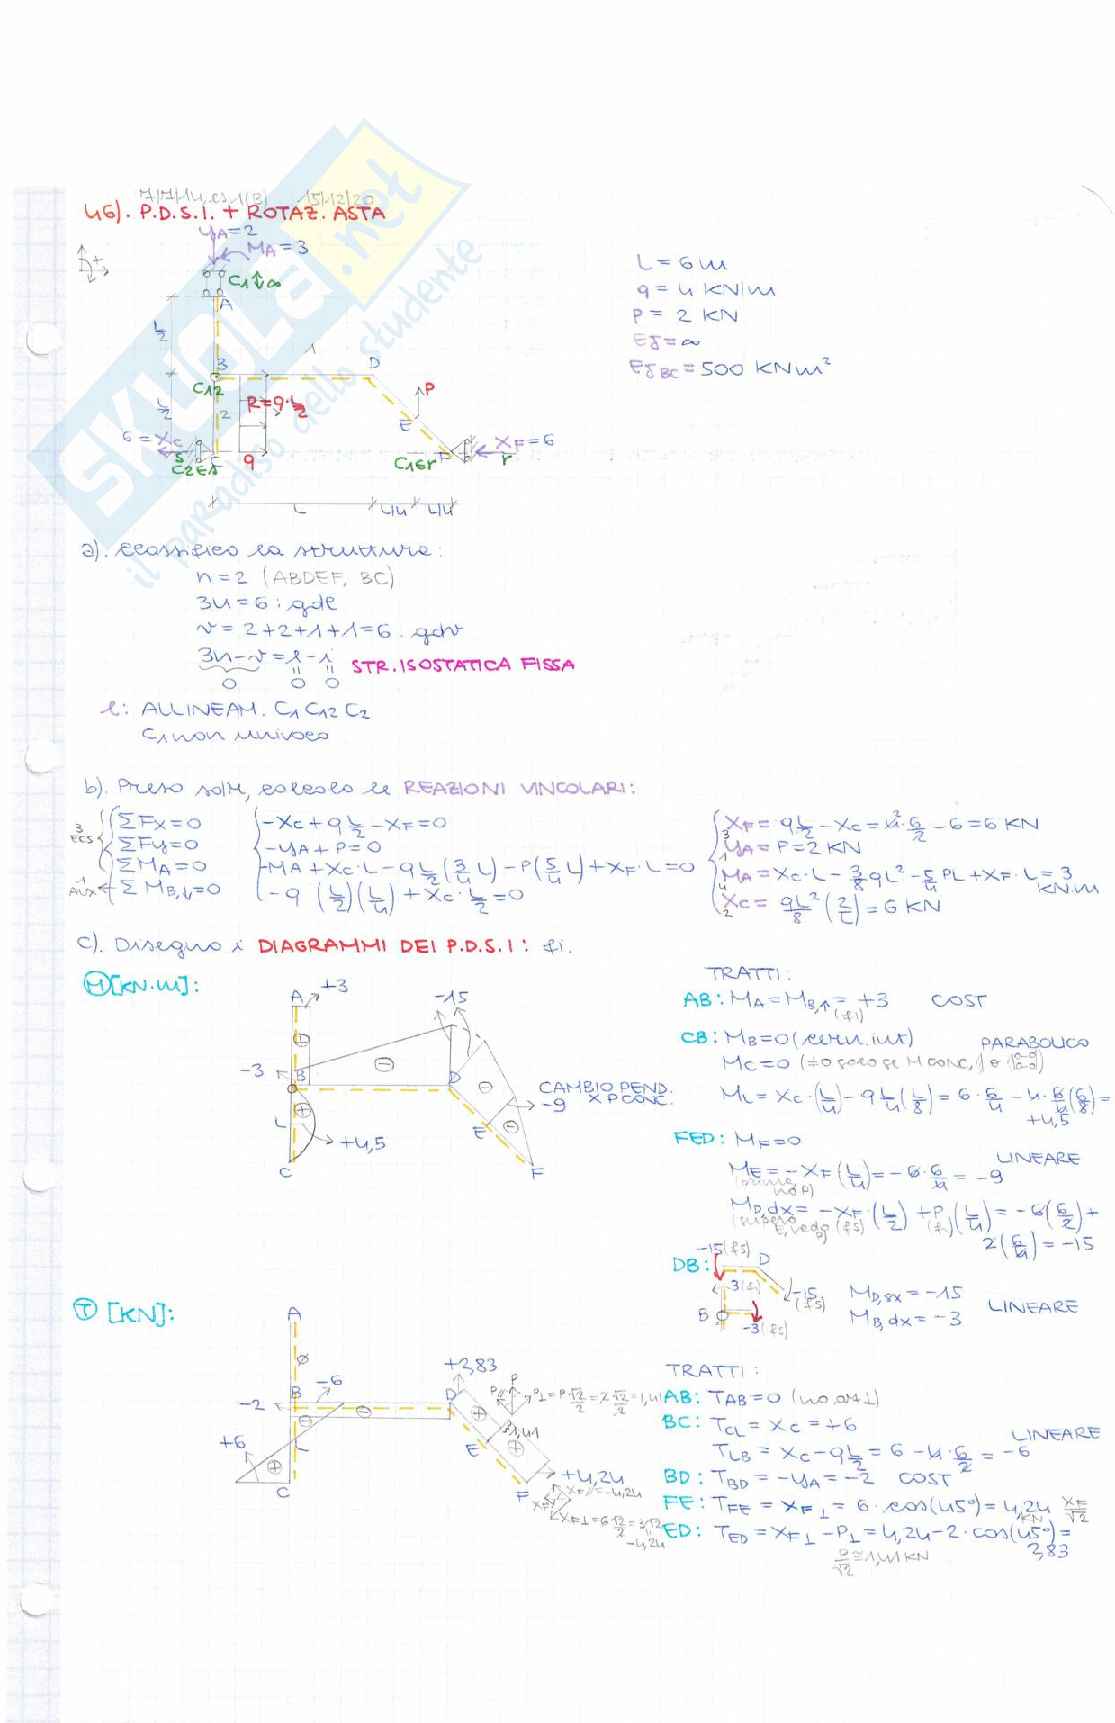 7/7/14, es 1(B) 15/12/20
46). P.D.S.I. + ROTAZ. ASTA
yA=2
MA=3
C1↕∞
A
L/2
B
D
1
C12
L/2
2
R=q·L/2
P
E
6=XC
XF=6
S
C2ES
C
q
C1Er
F
r
L
L/4
L/4
L=6m
q=4 KN/m
P=2 KN
EJ=∞
EJBC=500 KNm²
SKUOLA.net
il paradiso dello studente
a). Classifico la struttura:
n=2 (ABDEF, BC)
3n=6: gdl
v=2+2+1+1=6. gdv
3n-v=l-i STR. ISOSTATICA FISSA
0 0 0
l: ALLINEAM. C1 C12 C2
C1 non univoco
b). Preso solle, calcolo le REAZIONI VINCOLARI:
3 ECS
ΣFx=0
ΣFy=0
ΣMA=0
1 AUX
ΣMB,↓=0
-XC+qL/2-XF=0
-yA+P=0
-MA+XC·L-qL/2(3/4L)-P(5/4L)+XF·L=0
-q(L/2)(L/4)+XC·L/2=0
XF=qL/2-XC=4·6/2-6=6 KN
yA=P=2 KN
MA=XC·L-3/8qL²-5/4PL+XF·L=3 KN.m
XC=qL²/8(2/L)=6 KN
c). Disegno i DIAGRAMMI DEI P.D.S.I: fi.
M[KN·m]:
A
+3
-15
-3
B
D
CAMBIO PEND.
-9 X P CONC.
+4,5
L
E
C
F
TRATTI:
AB: MA=MB,↑=+3 COST
(fi)
CB: MB=0 (cern.int) PARABOLICO
MC=0
ML=XC·(L/4)-qL/4(L/8)=6·6/4-4·6/4(6/8)=
+4,5
FED: MF=0
LINEARE
ME=-XF(L/4)=-6·6/4=-9
(prima no P)
MD,dx=-XF·(L/2)+P(L/4)=-6(6/2)+
2(6/4)=-15
DB:
-15(fs)
D
3(fi)
-15
(fs)
B
-3(fs)
MD,sx=-15
MB,dx=-3
LINEARE
T [KN]:
A
ø
B
-6
-2
+2,83
D
P
P⊥=P·√2/2=2√2/2=1,41
1,41
E
+6
L
C
F
+4,24
XF⊥=6√2/2=3√2
-4,24
TRATTI:
AB: TAB=0 (no orz ⊥)
BC: TCL=XC=+6
LINEARE
TLB=XC-qL/2=6-4·6/2=-6
BD: TBD=-yA=-2 COST
FE: TFE=XF⊥=6·cos(45°)=4,24 XF/√2
KN
ED: TED=XF⊥-P⊥=4,24-2·cos(45°)=
2,83
2/√2=1,41KN